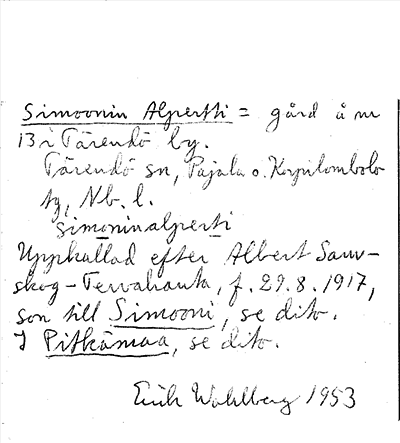 Simoonin Alpertti = gård å nr
13 i Tärendö by.
Tärendö sn, Pajala o. Korpilombolo
tg, Nb. l.
simoninalperti
Uppkallad efter Albert Sauv-
skog - Tervahauta, f. 29.8.1917,
son till Simooni, se dito.
I Pitkämaa, se dito.
Erik Wahlberg 1953